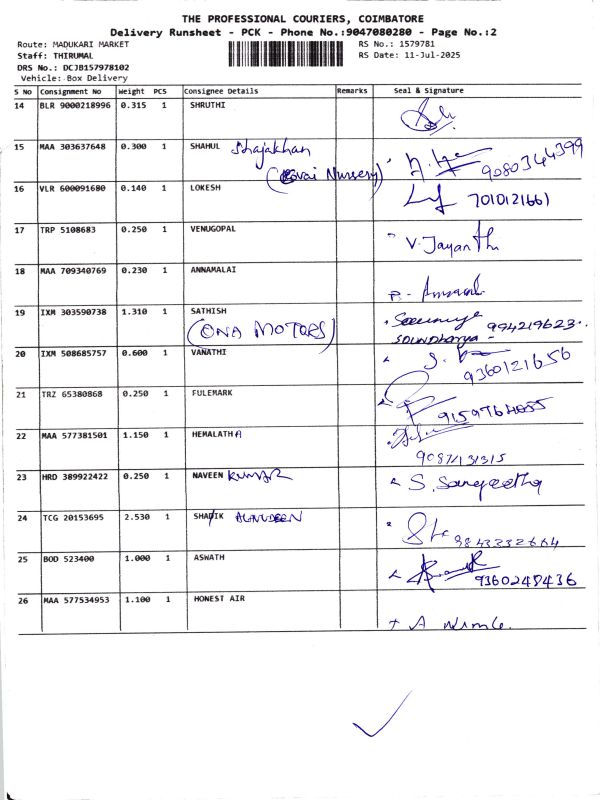 THE PROFESSIONAL COURIERS, COIMBATORE
Delivery Runsheet - PCK - Phone No.:9047080280 - Page No.:2
Route: MADUKARI MARKET RS No.: 1579781
Staff: THIRUMAL RS Date: 11-Jul-2025
DRS No.: DCJB157978102
Vehicle: Box Delivery
S No Consignment No Weight PCS Consignee Details Remarks Seal & Signature
14 BLR 9000218996 0.315 1 SHRUTHI
15 MAA 303637648 0.300 1 SHAHUL Shajakhan
(Kovai Nursery) 9080344399
16 VLR 600091680 0.140 1 LOKESH 7010121661
17 TRP 5108683 0.250 1 VENUGOPAL V. Jayanthi
18 MAA 709340769 0.230 1 ANNAMALAI
19 IXM 303590738 1.310 1 SATHISH 994219623
(ONA MOTORS) Soundharya
20 IXM 508685757 0.600 1 VANATHI 9360121656
21 TRZ 65380868 0.250 1 FULEMARK
22 MAA 577381501 1.150 1 HEMALATHA
9087131315
23 HRD 389922422 0.250 1 NAVEEN KUMAR S. Sangeetha
24 TCG 20153695 2.530 1 SHADIK ALAUDEEN 9843332664
25 BOD 523400 1.000 1 ASWATH
26 MAA 577534953 1.100 1 HONEST AIR